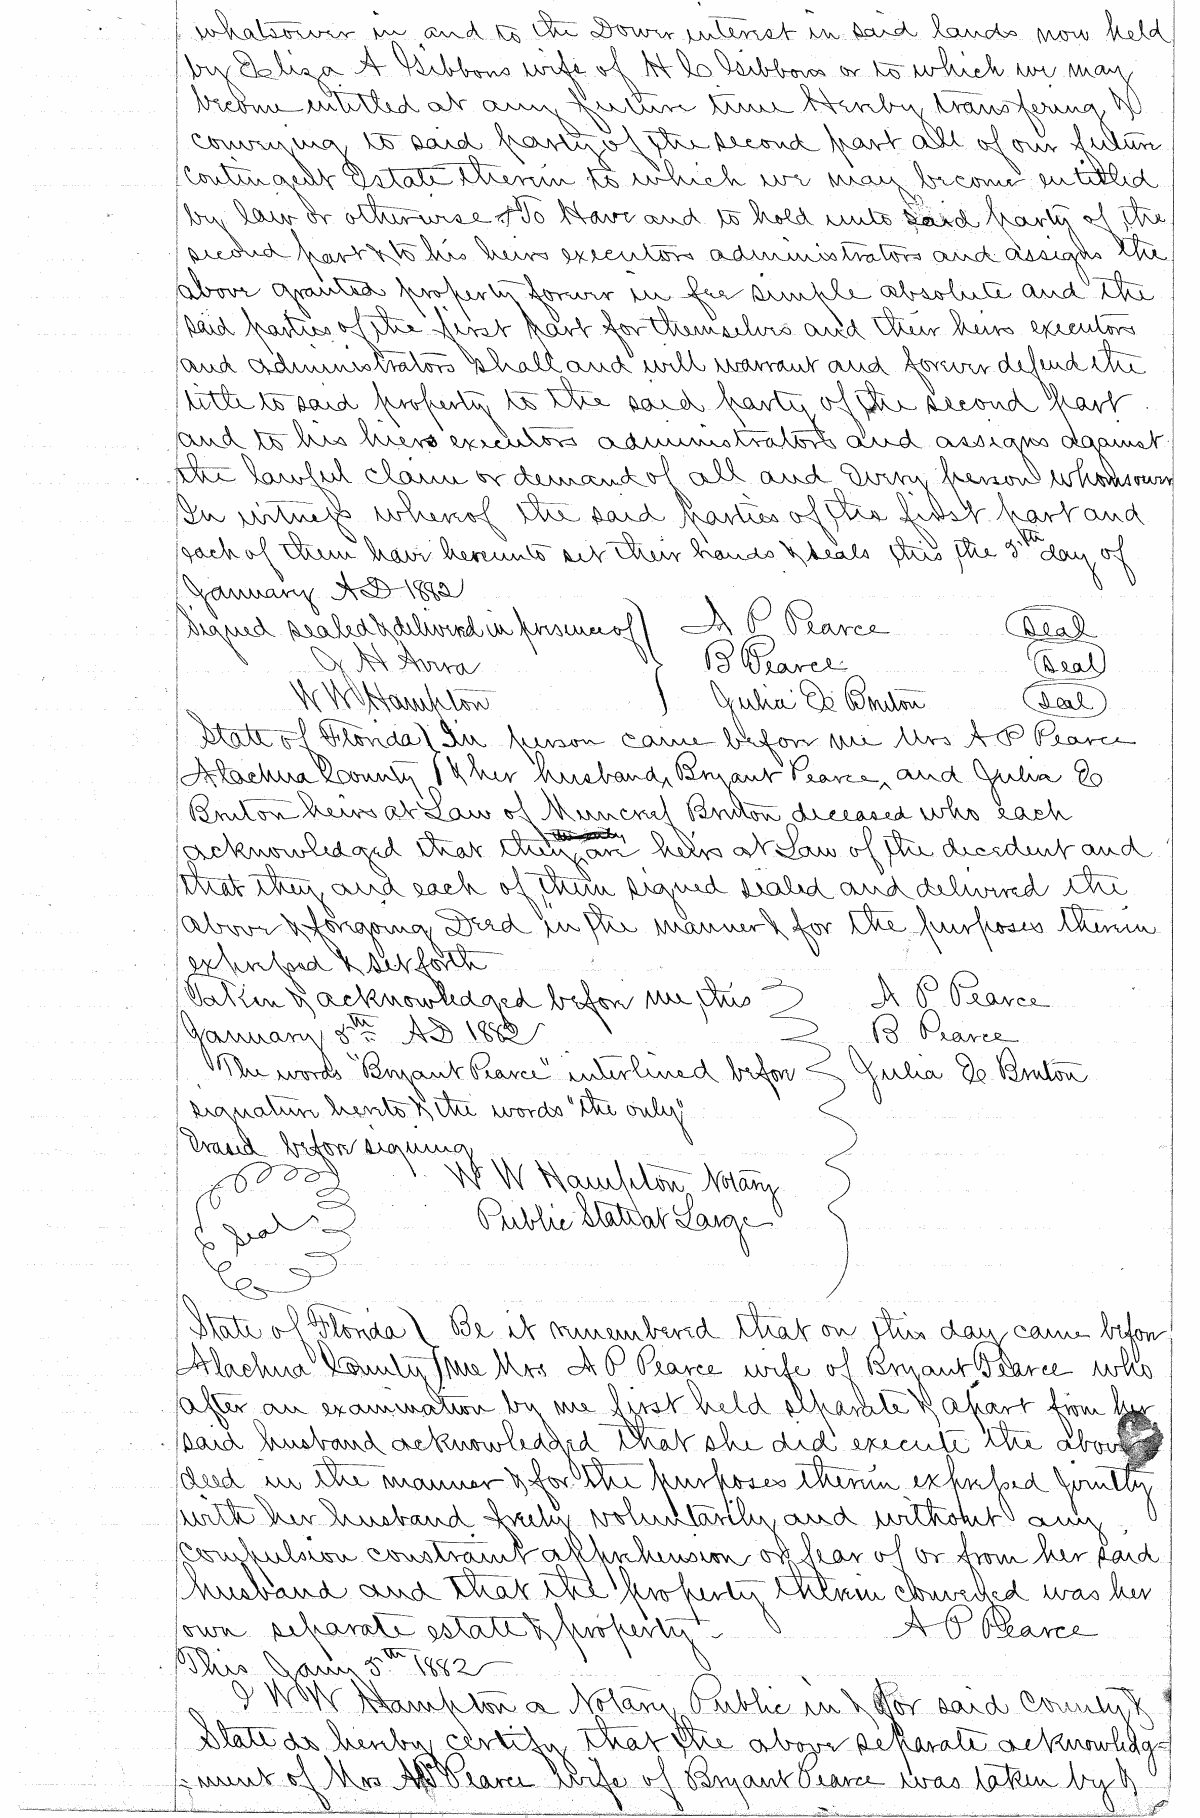 whatsoever in and to the Dower interest in said lands now held
by Eliza A Gibbons wife of H C Gibbons or to which we may
become intitled at any future time Hereby transfering &
conveying to said party of the second part all of our future
contingent Estate therein to which we may become entitled
by law or otherwise & To Have and to hold unto said party of the
second part & to his heirs executors administrators and assigns the
above granted property forever in fee simple absolute and the
said parties of the first part for themselves and their heirs executors
and administrators shall and will warrant and forever defend the
title to said property to the said party of the second part
and to his hiers executors administrators and assigns against
the lawful claim or demand of all and every person whomsoever
In witness whereof the said parties of the first part and
each of them have hereunto set their hands & seals this the 5th day of
January AD 1882
Signed sealed & delivered in presence of ) A P Pearce Seal
H Avra B Pearce Seal
W W Hampton ) Julia E Bruton Seal
State of Florida ) In person came before me Mrs A P Pearce
Alachua County ) & her husband, Bryant Pearce, and Julia E
Bruton heirs at Law of Bruton deceased who each
acknowledged that they the only are heirs at Law of the decedent and
that they and each of them signed sealed and delivered the
above & forgoing Deed in the manner & for the purposes therein
expressed & set forth
Taken & acknowledged before me this A P Pearce
January 5th AD 1882 B Pearce
The words "Bryant Pearce" interlined before Julia E Bruton
signature hereto & the words "the only"
Erased before signing
W W Hampton Notary
Seal Public State at Large
State of Florida ) Be it remembered that on this day came before
Alachua County ) me Mrs A P Pearce wife of Bryant Pearce who
after an examination by me first held separate & apart from her
said husband acknowledged that she did execute the above
deed in the manner & for the purposes therein expressed jointly
with her husband freely voluntarily and without any
compulsion constraint apprehension or fear of or from her said
husband and that the property therein conveyed was her
own separate estate & property A P Pearce
This Jany 5th 1882
I W W Hampton a Notary Public in & for said County &
State do hereby certify that the above separate acknowledg-
ment of Mrs A P Pearce wife of Bryant Pearce was taken by &